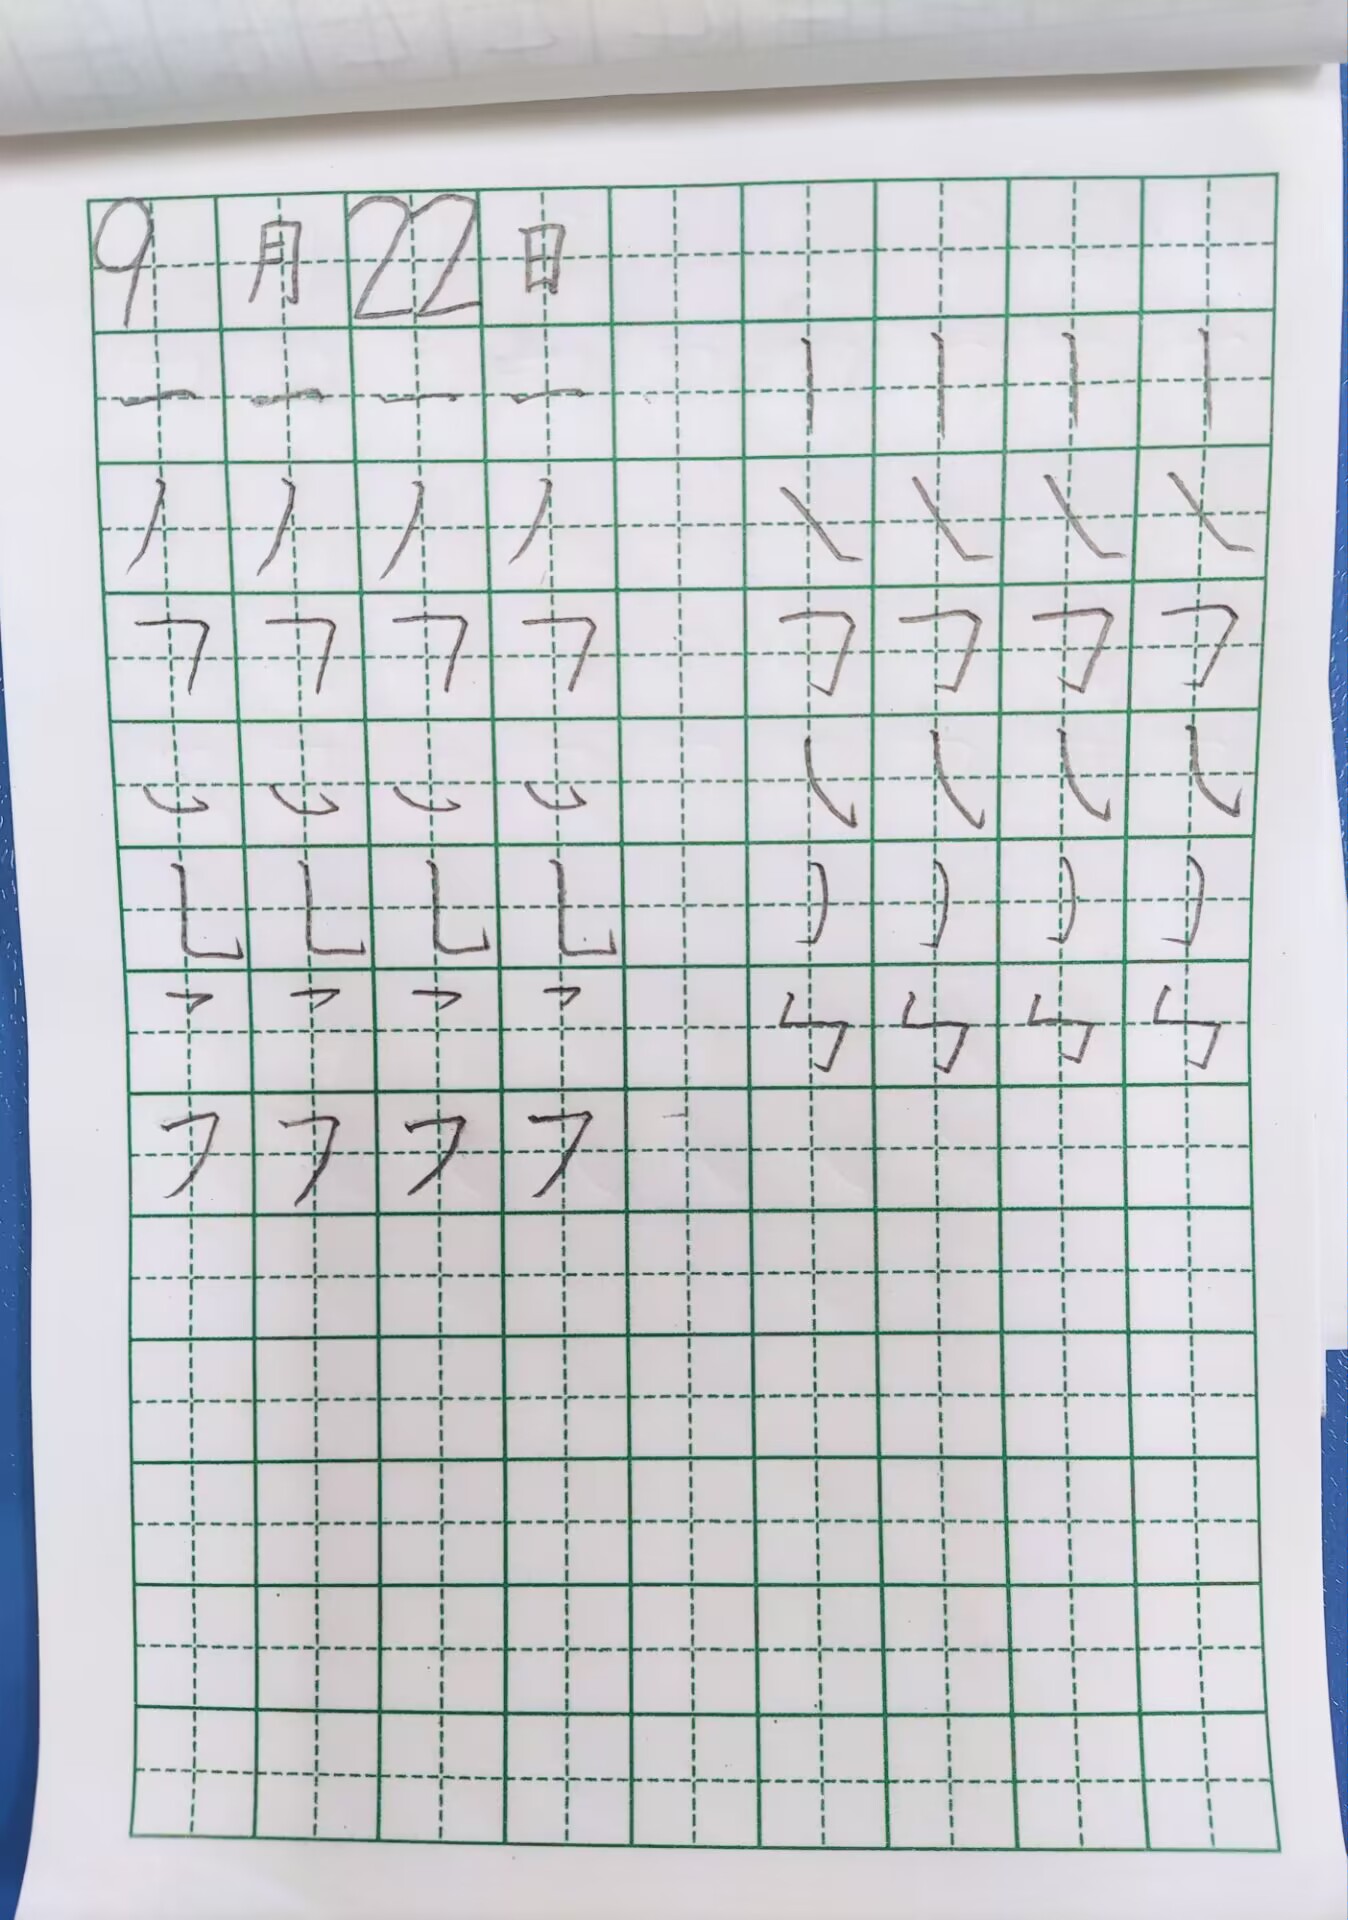 9月22日
一 一 一 一 丨 丨 丨 丨
丿 丿 丿 丿 ㇏ ㇏ ㇏ ㇏
𠃍 𠃍 𠃍 𠃍 ㇆ ㇆ ㇆ ㇆
㇃ ㇃ ㇃ ㇃ ㇂ ㇂ ㇂ ㇂
㇄ ㇄ ㇄ ㇄ ㇁ ㇁ ㇁ ㇁
㇖ ㇖ ㇖ ㇖ ㇉ ㇉ ㇉ ㇉
㇇ ㇇ ㇇ ㇇